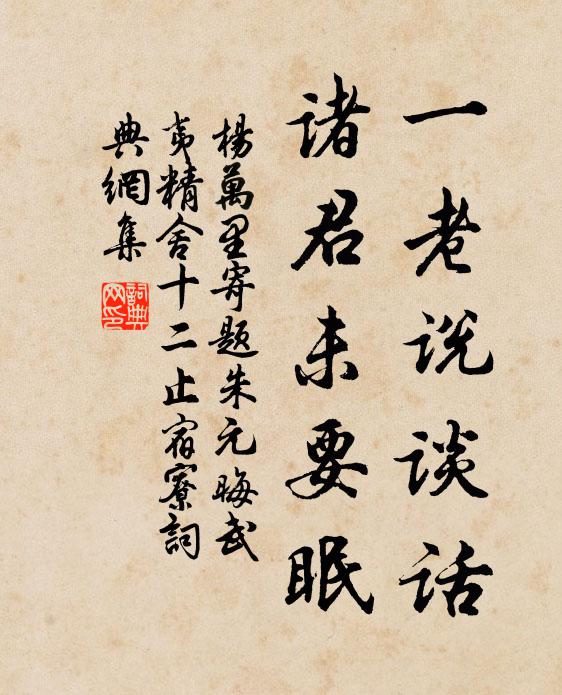 一老说谈话
诸君未要眠
楊萬里寄題朱元晦武
夷精舍十二止宿寮詞
典網集
詞典网印